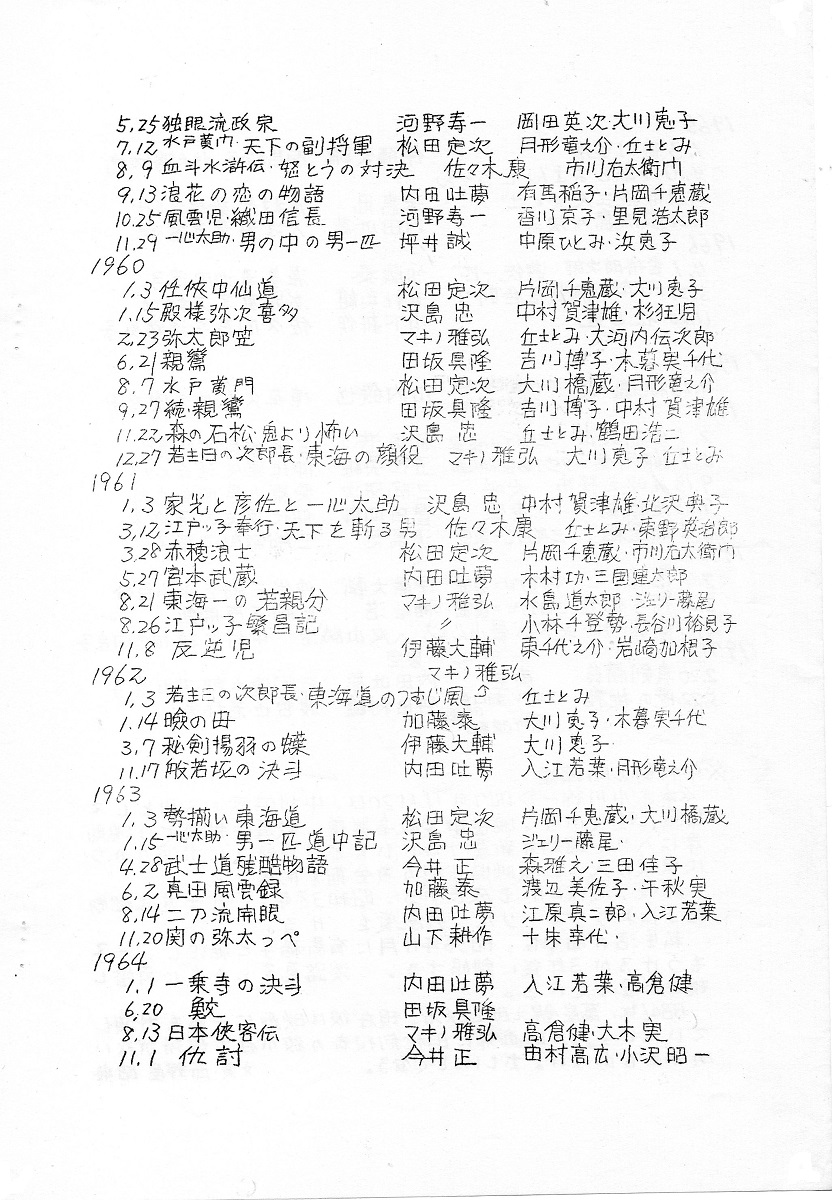 5.25 独眼流政宗 河野寿一 岡田英次・大川恵子
7.12 水戸黄門・天下の副将軍 松田定次 月形竜之介・丘さとみ
8.9 血斗水滸伝・怒とうの対決 佐々木康 市川右太衛門
9.13 浪花の恋の物語 内田吐夢 有馬稲子・片岡千恵蔵
10.25 風雲児・織田信長 河野寿一 香川京子・里見浩太郎
11.29 一心太助・男の中の男一匹 坪井誠 中原ひとみ・浜恵子
1960
1.3 任侠中仙道 松田定次 片岡千恵蔵・大川恵子
1.15 殿様弥次喜多 沢島忠 中村賀津雄・杉狂児
2.23 弥太郎笠 マキノ雅弘 丘さとみ・大河内伝次郎
6.21 親鸞 田坂具隆 吉川博子・木暮実千代
8.7 水戸黄門 松田定次 大川橋蔵・月形竜之介
9.27 続・親鸞 田坂具隆 吉川博子・中村賀津雄
11.22 森の石松・鬼より怖い 沢島忠 丘さとみ・鶴田浩二
12.27 若き日の次郎長・東海の顔役 マキノ雅弘 大川恵子・丘さとみ
1961
1.3 家光と彦佐と一心太助 沢島忠 中村賀津雄・北沢典子
3.12 江戸ッ子奉行・天下を斬る男 佐々木康 丘さとみ・東野英治郎
3.28 赤穂浪士 松田定次 片岡千恵蔵・市川右太衛門
5.27 宮本武蔵 内田吐夢 木村功・三国連太郎
8.21 東海一の若親分 マキノ雅弘 水島道太郎・ジェリー藤尾
8.26 江戸ッ子繁昌記 〃 小林千登勢・長谷川裕見子
11.8 反逆児 伊藤大輔 東千代之介・岩崎加根子
1962 マキノ雅弘
1.3 若き日の次郎長・東海道のつむじ風 丘さとみ
1.14 瞼の母 加藤泰 大川恵子・木暮実千代
3.7 秘剣揚羽の蝶 伊藤大輔 大川恵子
11.17 般若坂の決斗 内田吐夢 入江若葉・月形竜之介
1963
1.3 勢揃い東海道 松田定次 片岡千恵蔵・大川橋蔵
1.15 一心太助・男一匹道中記 沢島忠 ジェリー藤尾・
4.28 武士道残酷物語 今井正 森雅之・三田佳子
6.2 真田風雲録 加藤泰 渡辺美佐子・千秋実
8.14 二刀流開眼 内田吐夢 江原真二郎・入江若葉
11.20 関の弥太っぺ 山下耕作 十朱幸代・
1964
1.1 一乗寺の決斗 内田吐夢 入江若葉・高倉健
6.20 鮫 田坂具隆
8.13 日本侠客伝 マキノ雅弘 高倉健・大木実
11.1 仇討 今井正 田村高広・小沢昭一